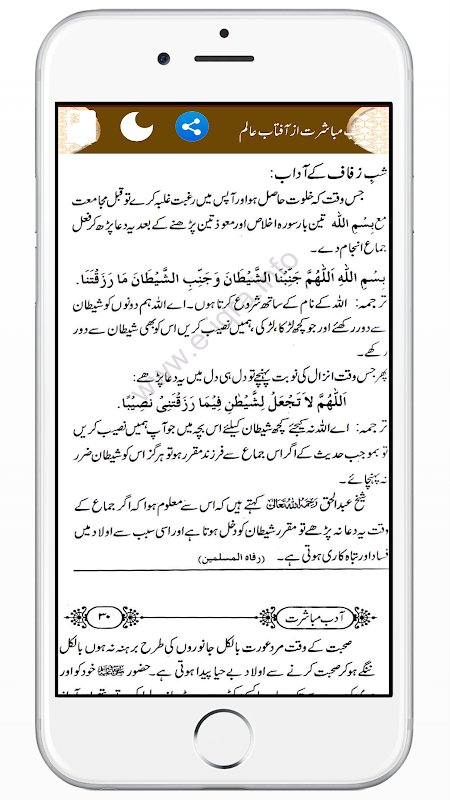 مباشرت از آفتاب عالم
شبِ زفاف کے آداب:
جس وقت کہ خلوت حاصل ہو اور آپس میں رغبت غلبہ کرے تو قبل مجامعت
مع بِسْمِ اللّٰه تین بار سورہ اخلاص اور معوذتین پڑھنے کے بعد یہ دعا پڑھ کر فعل
جماع انجام دے۔
بِسْمِ اللّٰهِ اَللّٰهُمَّ جَنِّبْنَا الشَّيْطَانَ وَجَنِّبِ الشَّيْطَانَ مَا رَزَقْتَنَا.
ترجمہ: اللہ کے نام کے ساتھ شروع کرتا ہوں۔ اے اللہ ہم دونوں کو شیطان
سے دور رکھئے اور جو کچھ لڑکا، لڑکی، ہمیں نصیب کریں اس کو بھی شیطان سے دور
رکھے۔
پھر جس وقت انزال کی نوبت پہنچے تو دل ہی دل میں یہ دعا پڑھے:
اَللّٰهُمَّ لاَ تَجْعَلْ لِشَّيْطٰنِ فِيْمَا رَزَقْتَنِىْ نَصِيْبًا.
ترجمہ: اے اللہ نہ کیجئے کچھ شیطان کیلئے اس بچہ میں جو آپ ہمیں نصیب کریں
تو بموجب حدیث کے اگر اس جماع سے فرزند مقرر ہو تو ہرگز اس کو شیطان ضرر
نہ پہنچائے۔
شیخ عبدالحق رَحِمَهُ اللهُ تَعَالٰی کہتے ہیں کہ اس سے معلوم ہوا کہ اگر جماع کے
وقت یہ دعا نہ پڑھے تو مقرر شیطان کو دخل ہوتا ہے اور اسی سبب سے اولاد میں
فساد اور تباہ کاری ہوتی ہے۔ (رفاه المسلمین)
آدب مباشرت ۳۰
صحبت کے وقت مرد عورت بالکل جانوروں کی طرح برہنہ نہ ہوں بالکل
ننگے ہو کر صحبت کرنے سے اولاد بے حیا پیدا ہوتی ہے۔ حضور ﷺ خود کو اور